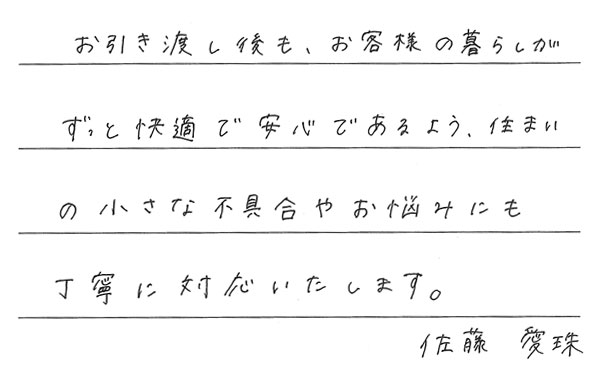 お引き渡し後も、お客様の暮らしが
ずっと快適で安心であるよう、住まい
の小さな不具合やお悩みにも
丁寧に対応いたします。
佐藤 愛珠